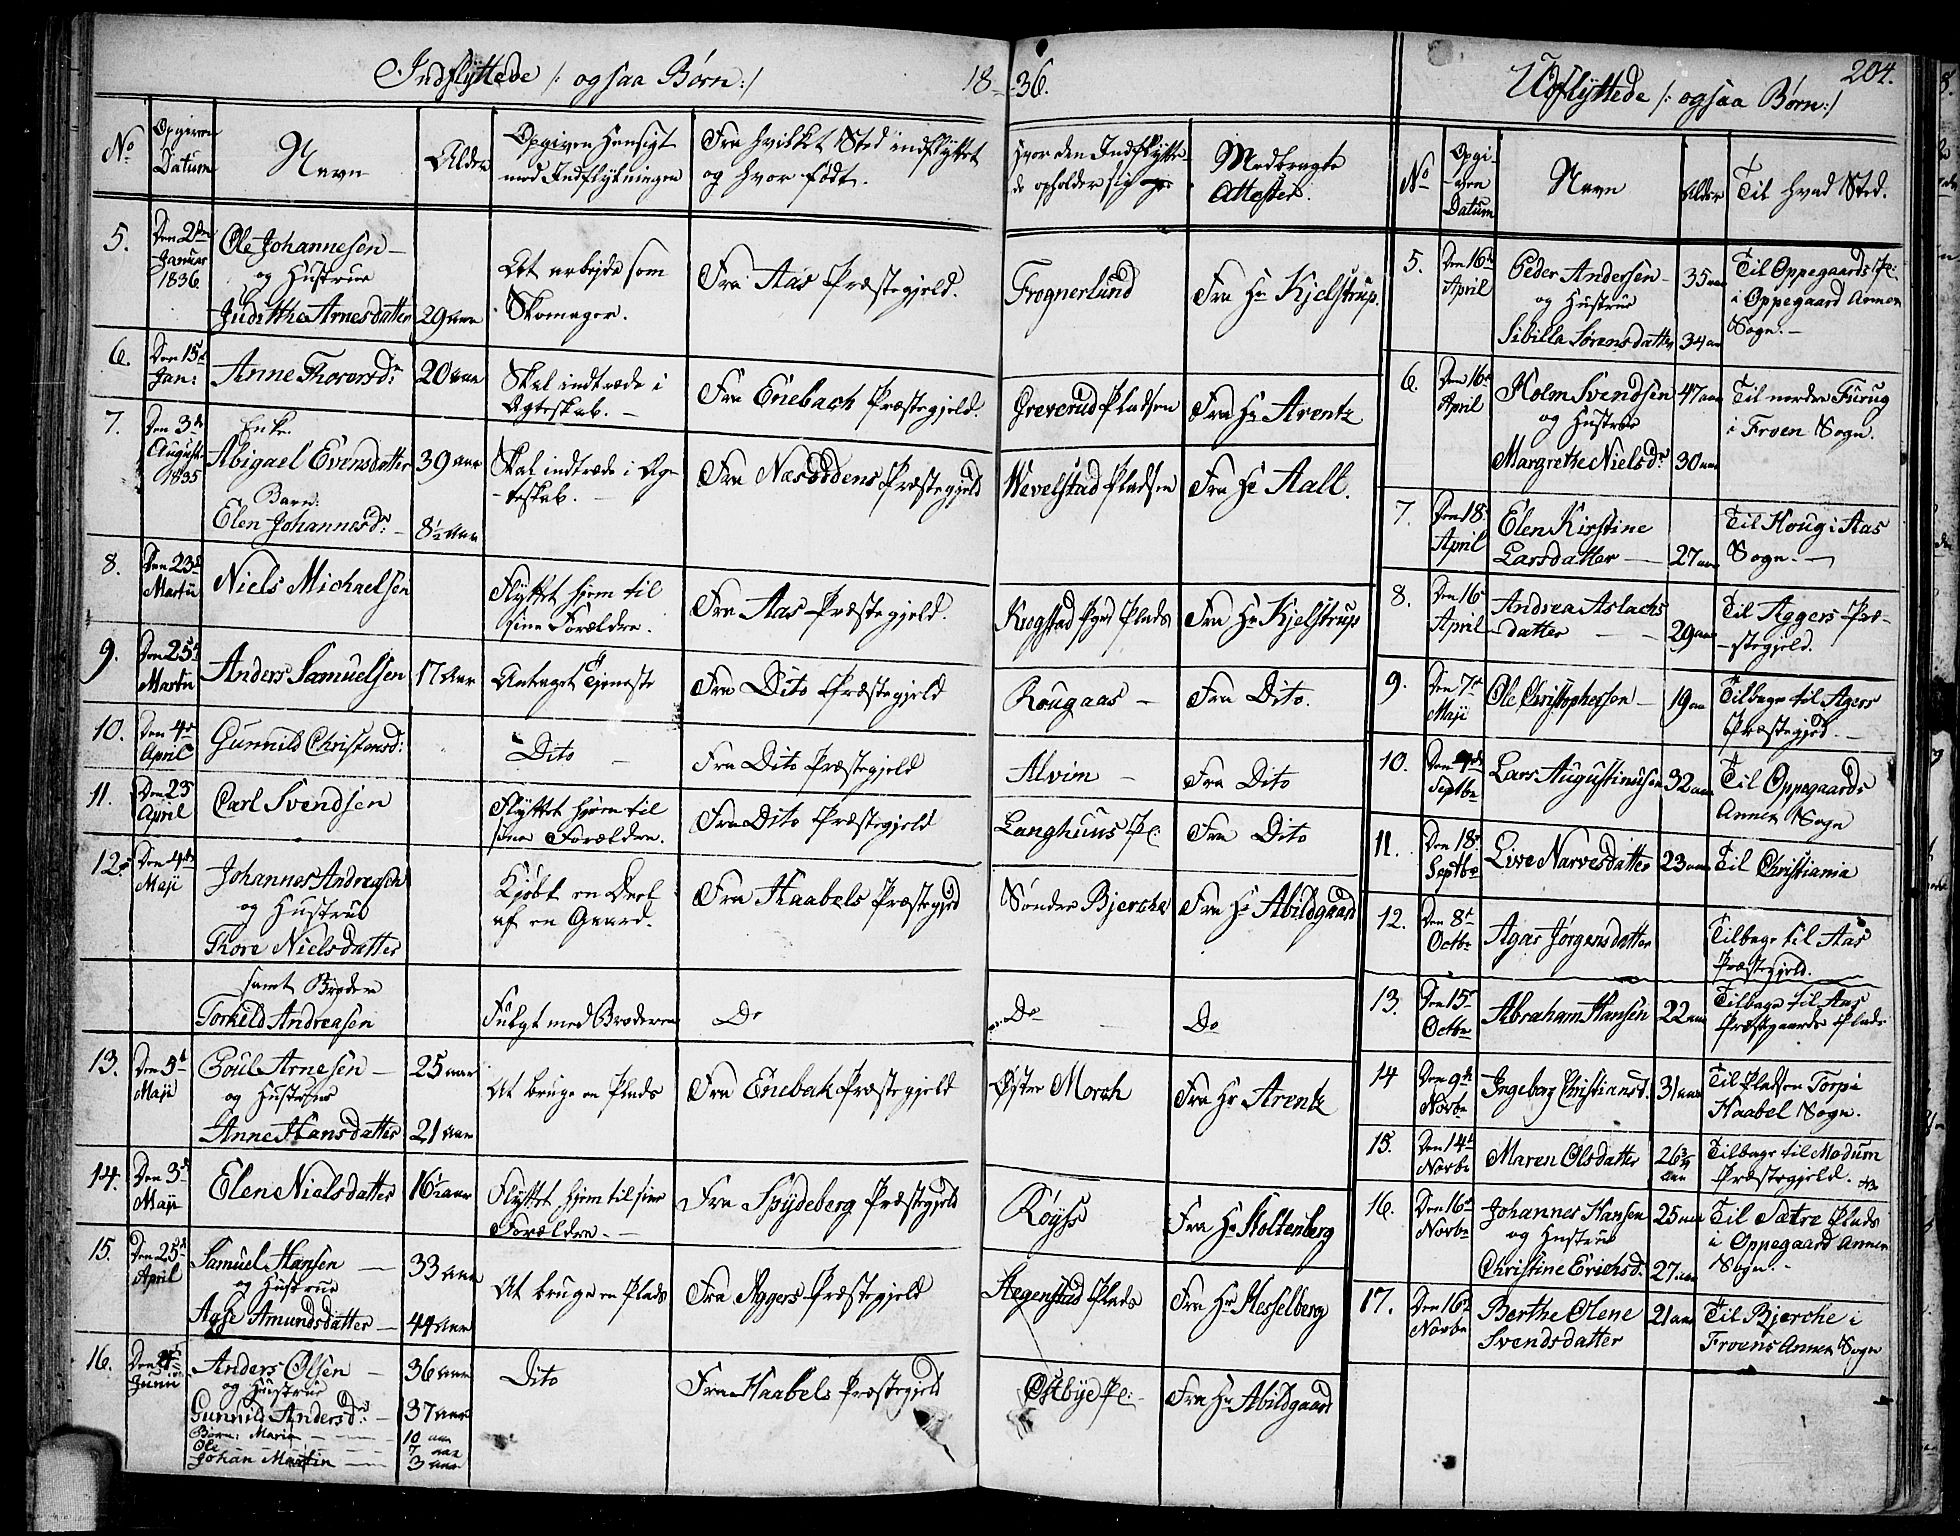 Indflyttede /: ogsaa Børn :/
18
36.
Udflyttede /: ogsaa Børn :/
204.
No
Opgiven
Datum
Navn
Alder
Opgiven Hensigt
med Indflytningen
Fra hvilket Sted indflyttet
og hvor født.
Hvor den Indflytte-
de opholder sig
Medbragte
Attester.
5.
Den 2den
Januar
1836
Ole Johannesen
og Hustrue
Judithe Arnesdatter
29 aar
At arbejde som
Skomager.
Fra Aas Præstegjeld.
Frognerlund
Fra Hr Kjelstrup.
6.
Den 15de
Jan:
Anne Thorersdr
20 aar
Skal indtræde i
Egteskab.
Fra Enebach Præstegjeld.
Greverud Pladsen
Fra Hr Arentz
7.
Den 3de
August
1835
Enke.
Abigael Evensdatter
39 aar
Barn:
Elen Johannesdr
8½ aar
Skal indtræde i Eg-
teskab.
Fra Næsoddens Præstegjeld
Wevelstad Pladsen
Fra Hr Aall.
8.
Den 23de
Martii
Niels Michaelsen
Flyttet hjem til
sine Forældre.
Fra Aas Præstegjeld.
Krogstad Pgds Plads
Fra Hr Kjelstrup
9.
Den 25de
Martii
Anders Samuelsen
17 Aar
Antaget Tjeneste
Fra Dito Præstegjeld
Rougaas
Fra Dito.
10.
Den 4de
April
Gunnild Christensd:
Dito
Fra Dito Præstegjeld
Alvim
Fra Dito
11.
Den 23
April
Carl Svendsen
Flyttet hjem til
sine Forældre.
Fra Dito Præstegjeld
Langhuus Pl:
Fra Dito
12.
Den 4de
Maji
Johannes Andreasen
og Hustrue
Thore Nielsdatter
Kjøbt en Deel
af en Gaard.
Fra Haabels Præstegjeld
Søndre Bjerche
Fra Hr Abildgaard
samt Broder
Torkild Andreasen
Fulgt med Broderen
Do
Do
Do
13.
Den 5te
Maji
Poul Arnesen
25 aar
og Hustrue
Anne Hansdatter
21 aar
At bruge en Plads
Fra Enebak Præstegjeld
Østre Morch
Fra Hr Arentz
14.
Den 3de
Maji
Elen Nielsdatter
16½ aar
Flyttet hjem til sine
Forældre.
Fra Spydeberg Præstegjeld
Røyss
Fra Hr Stoltenberg
15.
Den 25de
April
Samuel Hansen
33 aar
og Hustrue
Aase Amundsdatter
44 aar
At bruge en Plads
Fra Aggers Præstegjeld
Hegenstad Plads
Fra Hr Hesselberg
16.
Junii
Anders Olsen
36 aar
og Hustrue
Gunnild Andersdr:
37 aar
Børn: Maria
10 aar
Ole
7 aar
Johan Martin
3 aar
Dito
Fra Haabels Præstegjeld
Østbye Pl:
Fra Hr Abildgaard
No
Opgi-
ven
Datum
Navn
Alder
Til hvad Sted.
5.
Den 16de
April
Peder Andersen
35 aar
og Hustrue
Sibilla Sørensdatter
34 aar
Til Oppegaards Pl:
i Oppegaard Annex
Sogn.
6.
Den 16de
April
Holm Svendsen
47 aar
og Hustrue
Margrethe Nielsdr
30 aar
Til nordre Furug
i Froen Sogn.
7.
Den 18
April
Elen Kirstine
Larsdatter
27 aar
Til Houg i Aas
Sogn.
8.
Den 16
April
Andrea Aslachs
datter
29 aar
Til Aggers Præ-
stegjeld.
9.
Den 7de
Maji
Ole Christophersen
19 aar
Tilbage til Agers
Præstegjeld.
10.
Septbr
Lars Augustinusen
32 aar
Til Oppegaards
Annex Sogn
11.
Den 18de
Septbr
Live Narvesdatter
23 aar
Til Christiania
12.
Den 8de
Octbr
Agas Jørgensdatter
Tilbage til Aas
Præstegjeld.
13.
Den 15de
Octbr
Abraham Hansen
22 aar
Tilbage til Aas
Præstegaards Plads
14
Den 9de
Novbr
Ingeborg Christiansd.
31 aar
Til Pladsen Torp i
Haabel Sogn.
15.
Den 14de
Novbr
Maren Olsdatter
26¾
aar
Tilbage til Modum
Præstegjeld.
16.
Den 16de
Novbr
Johannes Hansen
25 aar
og Hustrue
Christine Erichsd.
27 aar
Til Sætre Plads
i Oppegaard Annex
Sogn.
17.
Den 16de
Novbr
Berthe Olene
Svendsdatter
21 aar
Til Bjerche i
Froens Annex Sogn